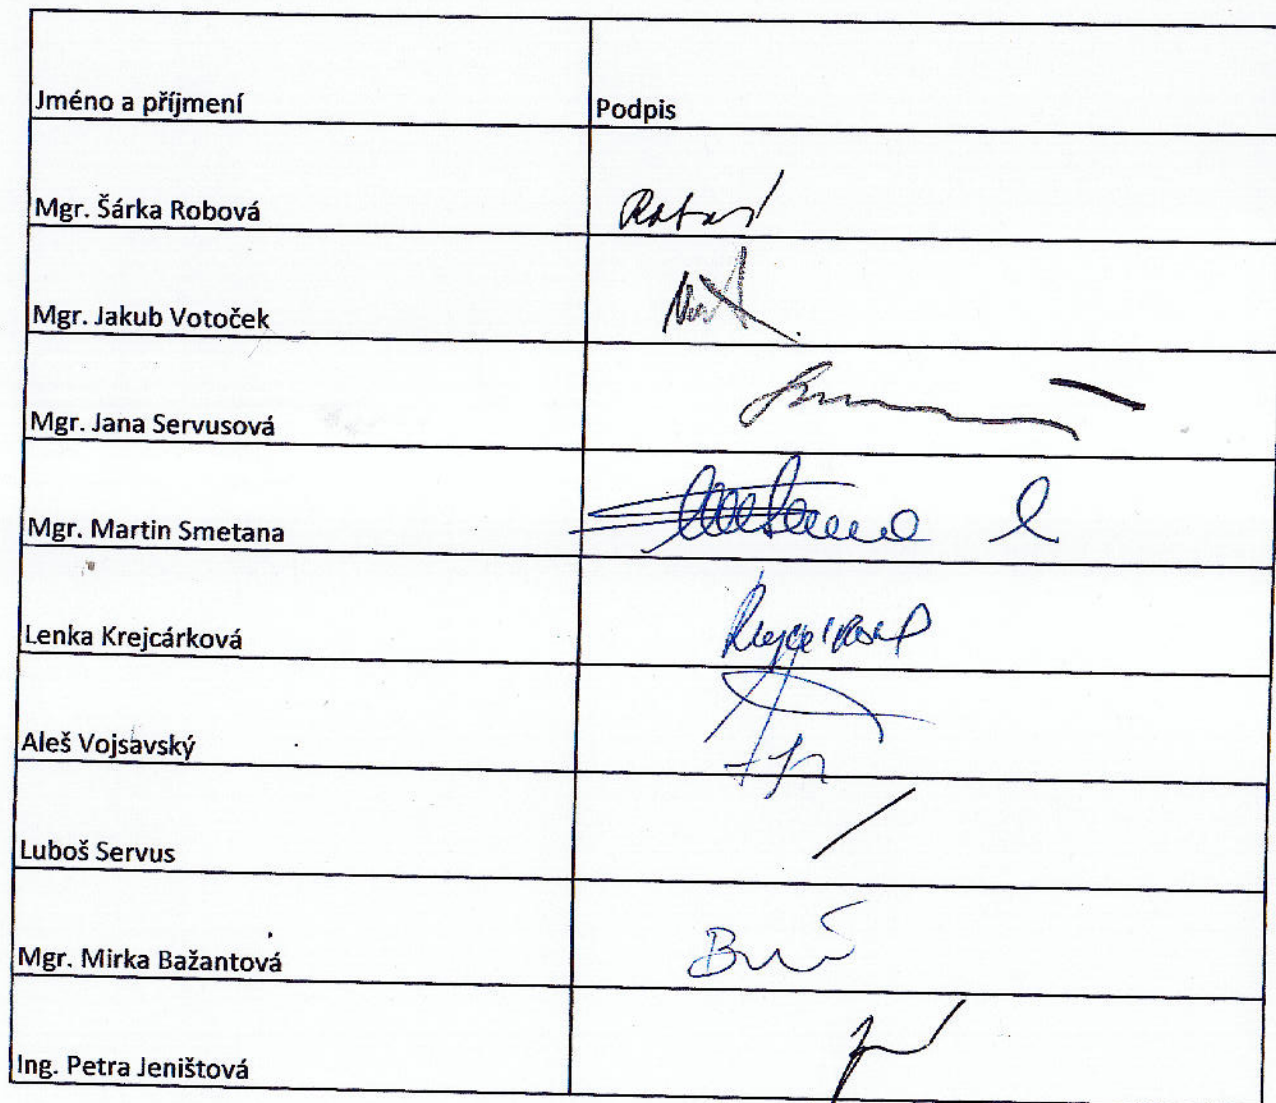 Jméno a příjmení Podpis
Mgr. Šárka Robová
Mgr. Jakub Votoček
Mgr. Jana Servusová
Mgr. Martin Smetana
Lenka Krejcárková
Aleš Vojsavský
Luboš Servus
Mgr. Mirka Bažantová
Ing. Petra Jeništová